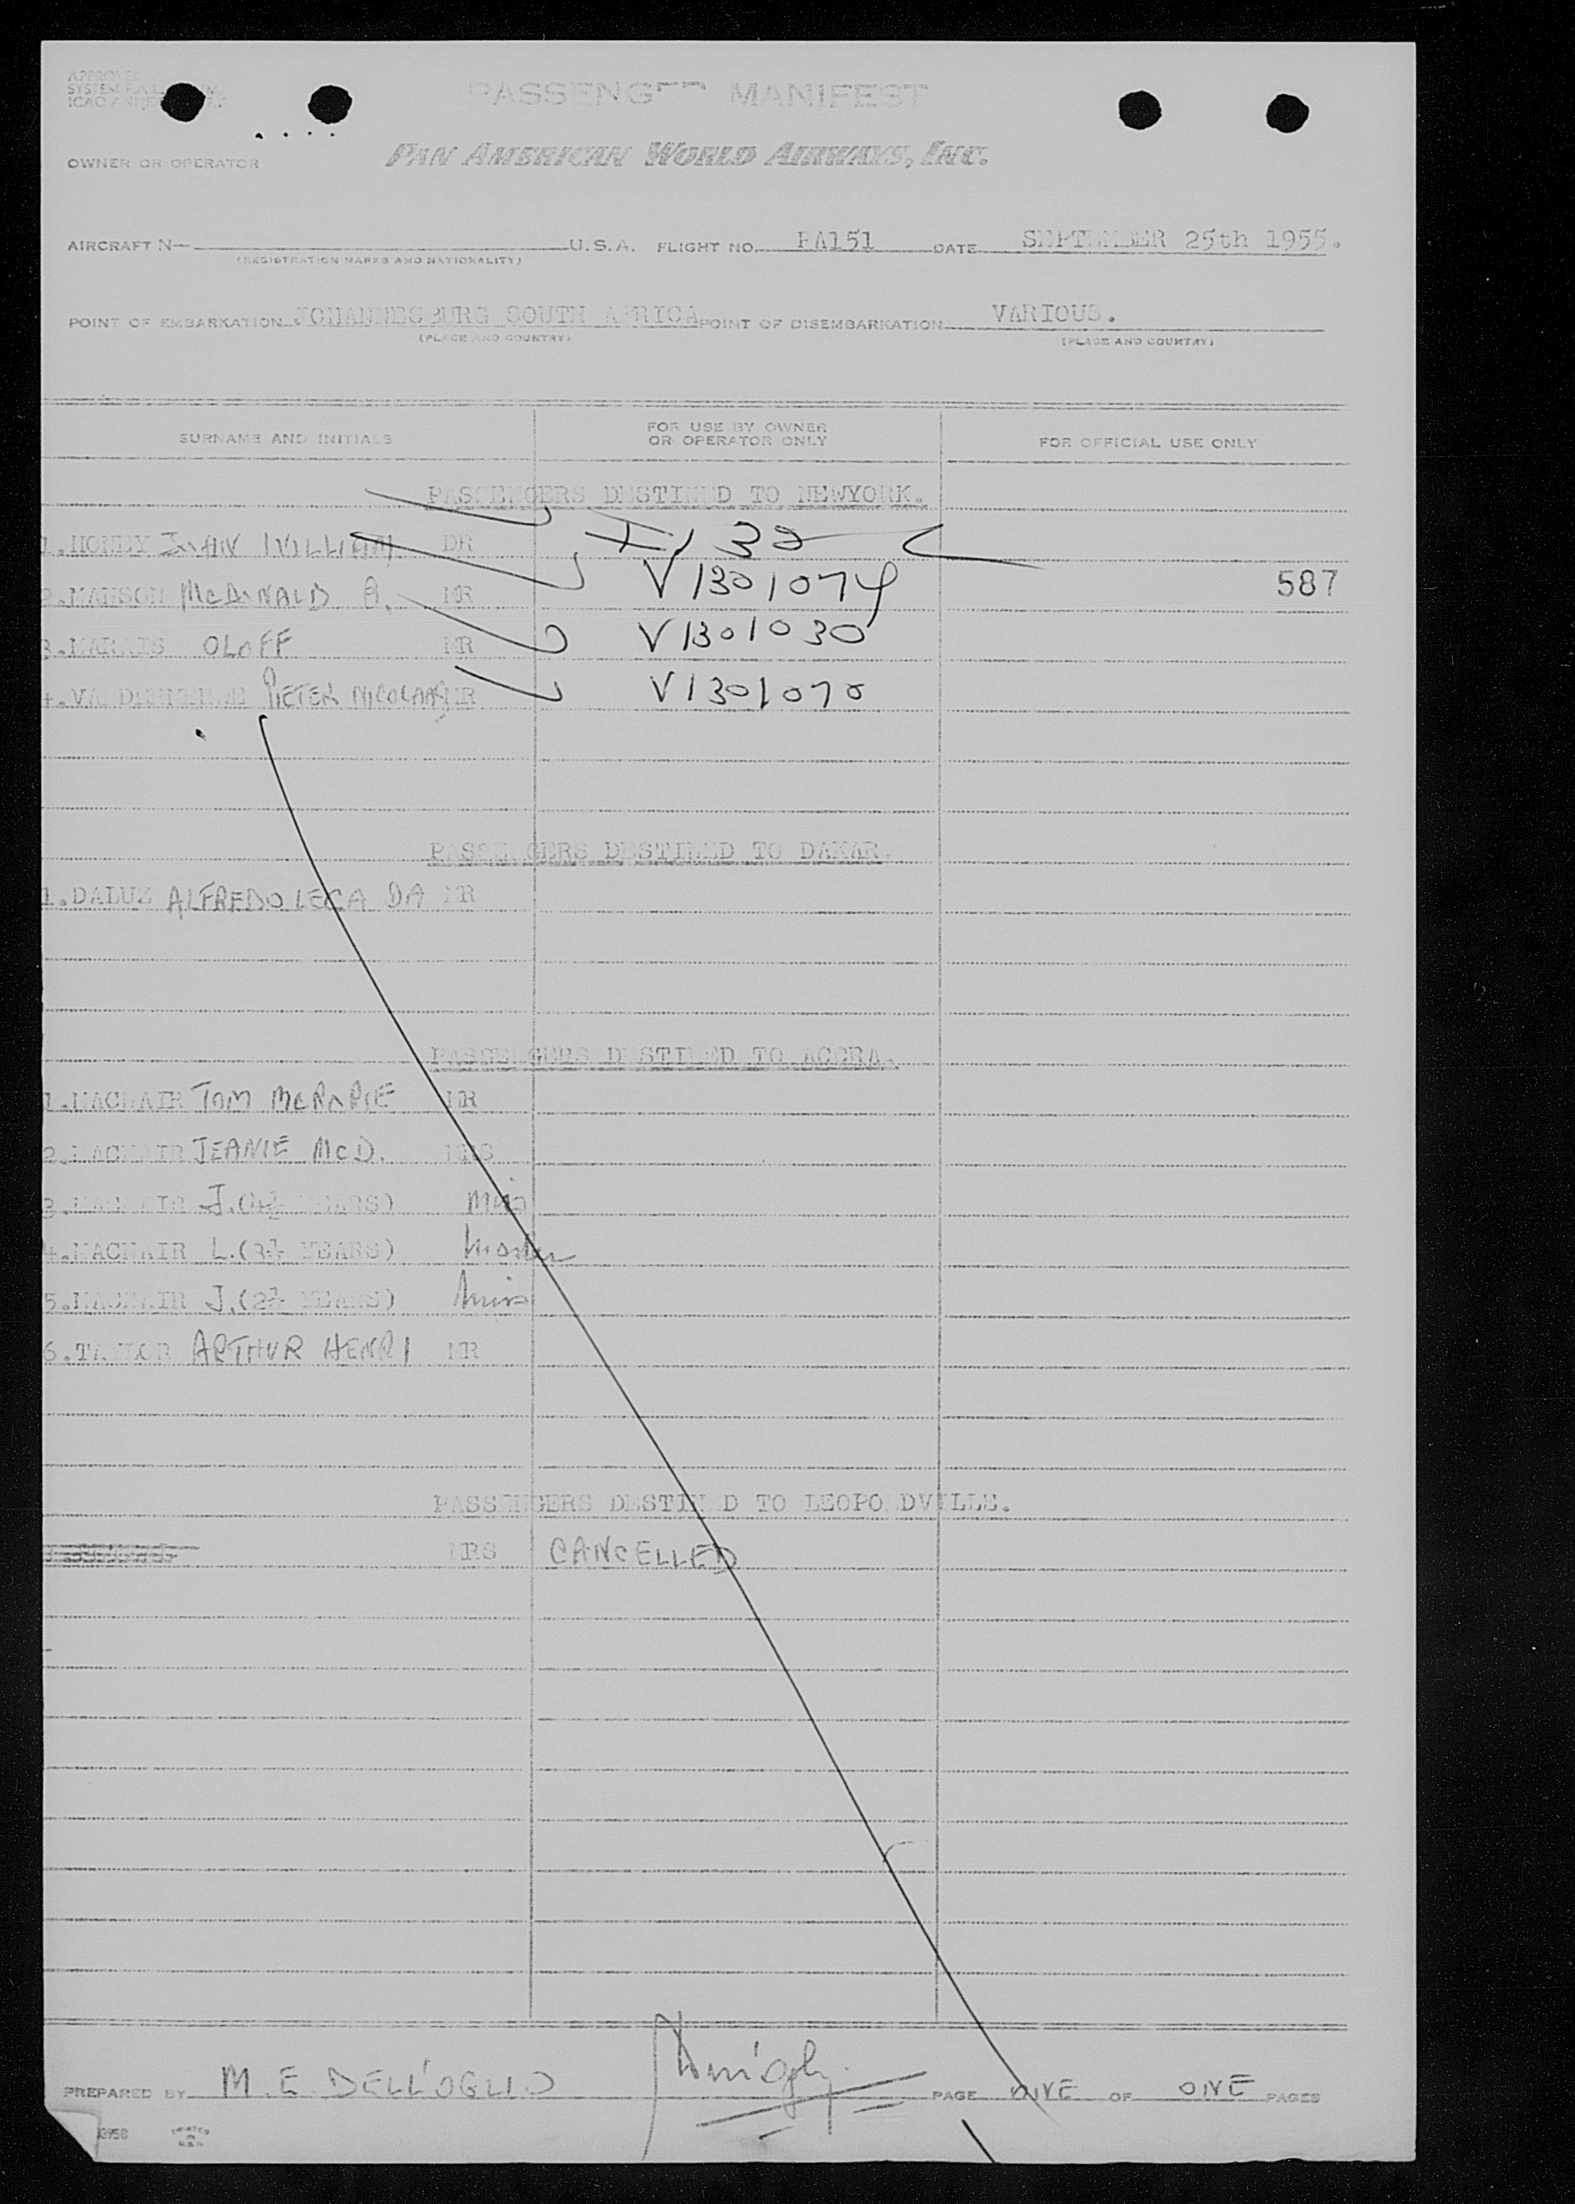 PASSENGER MANIFEST
OWNER OR OPERATOR PAN AMERICAN WORLD AIRWAYS, INC.
AIRCRAFT N— U.S.A. FLIGHT NO. PA151 DATE SEPTEMBER 25th 1955.
(REGISTRATION MARKS AND NATIONALITY)
POINT OF EMBARKATION JOHANNESBURG SOUTH AFRICA POINT OF DISEMBARKATION VARIOUS.
(PLACE AND COUNTRY) (PLACE AND COUNTRY)
SURNAME AND INITIALS FOR USE BY OWNER OR OPERATOR ONLY FOR OFFICIAL USE ONLY
PASSENGERS DESTINED TO NEWYORK.
1. DR
2. MANSON McDONALD A. MR V1301074 587
3. MARAIS OLOFF MR V1301030
4. PIETER NICOLAAS MR V1301070
PASSENGERS DESTINED TO DAKAR.
1. DALUZ ALFREDO LECA DA MR
PASSENGERS DESTINED TO ACCRA.
1. MACNAIR TOM MR
2. MACNAIR JEANIE McD. MRS
3. MACNAIR J. YEARS) Miss
4. MACNAIR L. (3½ YEARS) Master
5. MACNAIR J. (2½ YEARS) Miss
6. TAYLOR ARTHUR HENRI MR
PASSENGERS DESTINED TO LEOPOLDVILLE.
MRS CANCELLED
PREPARED BY M.E. DELL'OGLIO PAGE ONE OF ONE PAGES
PRINTED IN U.S.A.